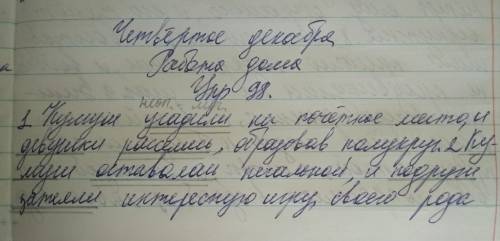 Четвёртое декабря
Работа дома
Упр 98.
1. Кумуш усадили на почётное место, и
девушки расселись, образовав полукруг. 2 Ку-
муш оставалась печальной, и подруги
затеяли интересную игру, своего рода